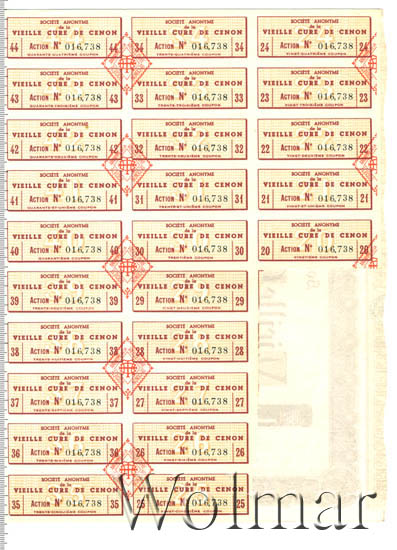 SOCIÉTÉ ANONYME
de la
VIEILLE CURE DE CENON
44 ACTION N° 016,738 44
QUARANTE-QUATRIÈME COUPON
SOCIÉTÉ ANONYME
de la
VIEILLE CURE DE CENON
34 ACTION N° 016,738 34
TRENTE-QUATRIÈME COUPON
SOCIÉTÉ ANONYME
de la
VIEILLE CURE DE CENON
24 ACTION N° 016,738 24
VINGT-QUATRIÈME COUPON
SOCIÉTÉ ANONYME
de la
VIEILLE CURE DE CENON
43 ACTION N° 016,738 43
QUARANTE-TROISIÈME COUPON
SOCIÉTÉ ANONYME
de la
VIEILLE CURE DE CENON
33 ACTION N° 016,738 33
TRENTE-TROISIÈME COUPON
SOCIÉTÉ ANONYME
de la
VIEILLE CURE DE CENON
23 ACTION N° 016,738 23
VINGT-TROISIÈME COUPON
SOCIÉTÉ ANONYME
de la
VIEILLE CURE DE CENON
42 ACTION N° 016,738 42
QUARANTE-DEUXIÈME COUPON
SOCIÉTÉ ANONYME
de la
VIEILLE CURE DE CENON
32 ACTION N° 016,738 32
TRENTE-DEUXIÈME COUPON
SOCIÉTÉ ANONYME
de la
VIEILLE CURE DE CENON
22 ACTION N° 016,738 22
VINGT-DEUXIÈME COUPON
SOCIÉTÉ ANONYME
de la
VIEILLE CURE DE CENON
41 ACTION N° 016,738 41
QUARANTE-ET-UNIÈME COUPON
SOCIÉTÉ ANONYME
de la
VIEILLE CURE DE CENON
31 ACTION N° 016,738 31
TRENTE-ET-UNIÈME COUPON
SOCIÉTÉ ANONYME
de la
VIEILLE CURE DE CENON
21 ACTION N° 016,738 21
VINGT-ET-UNIÈME COUPON
SOCIÉTÉ ANONYME
de la
VIEILLE CURE DE CENON
40 ACTION N° 016,738 40
QUARANTIÈME COUPON
SOCIÉTÉ ANONYME
de la
VIEILLE CURE DE CENON
30 ACTION N° 016,738 30
TRENTIÈME COUPON
SOCIÉTÉ ANONYME
de la
VIEILLE CURE DE CENON
20 ACTION N° 016,738 20
VINGTIÈME COUPON
SOCIÉTÉ ANONYME
de la
VIEILLE CURE DE CENON
39 ACTION N° 016,738 39
TRENTE-NEUVIÈME COUPON
SOCIÉTÉ ANONYME
de la
VIEILLE CURE DE CENON
29 ACTION N° 016,738 29
VINGT-NEUVIÈME COUPON
SOCIÉTÉ ANONYME
de la
VIEILLE CURE DE CENON
38 ACTION N° 016,738 38
TRENTE-HUITIÈME COUPON
SOCIÉTÉ ANONYME
de la
VIEILLE CURE DE CENON
28 ACTION N° 016,738 28
VINGT-HUITIÈME COUPON
SOCIÉTÉ ANONYME
de la
VIEILLE CURE DE CENON
37 ACTION N° 016,738 37
TRENTE-SEPTIÈME COUPON
SOCIÉTÉ ANONYME
de la
VIEILLE CURE DE CENON
27 ACTION N° 016,738 27
VINGT-SEPTIÈME COUPON
SOCIÉTÉ ANONYME
de la
VIEILLE CURE DE CENON
36 ACTION N° 016,738 36
TRENTE-SIXIÈME COUPON
SOCIÉTÉ ANONYME
de la
VIEILLE CURE DE CENON
26 ACTION N° 016,738 26
VINGT-SIXIÈME COUPON
SOCIÉTÉ ANONYME
de la
VIEILLE CURE DE CENON
35 ACTION N° 016,738 35
TRENTE-CINQUIÈME COUPON
SOCIÉTÉ ANONYME
de la
VIEILLE CURE DE CENON
25 ACTION N° 016,738 25
VINGT-CINQUIÈME COUPON
Wolmar